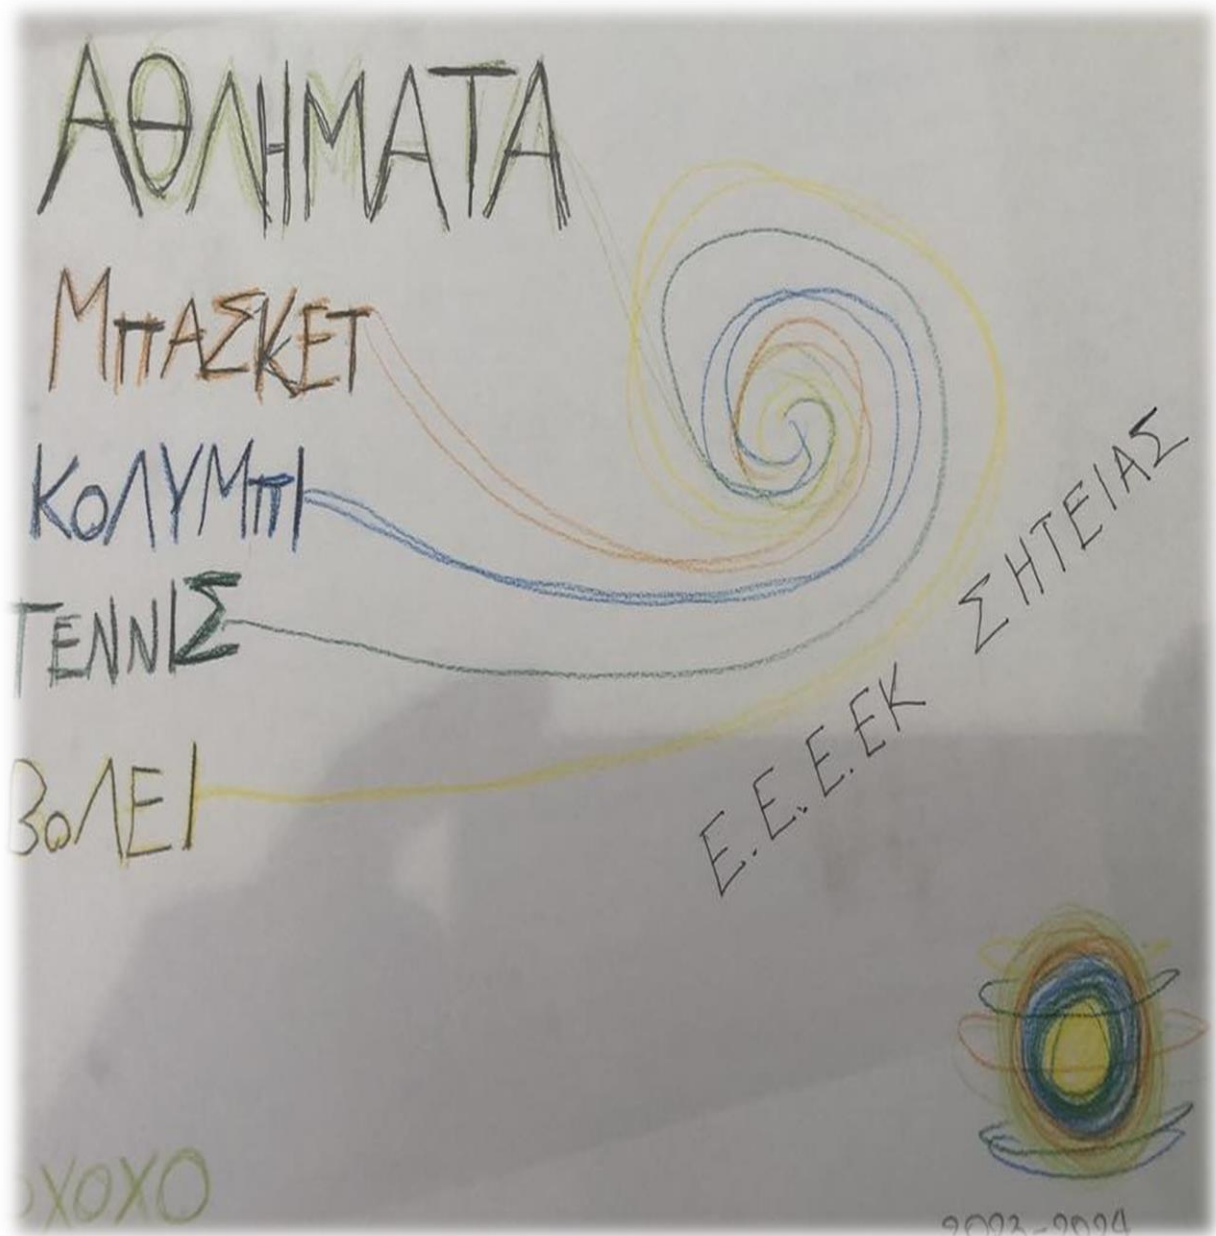 ΑΘΛΗΜΑΤΑ
ΜΠΑΣΚΕΤ
ΚΟΛΥΜΠΙ
ΤΕΝΝΙΣ
ΒΟΛΕΙ
Ε.Ε.Ε.ΕΚ ΣΗΤΕΙΑΣ
ΟΧΟΧΟ
2023-2024